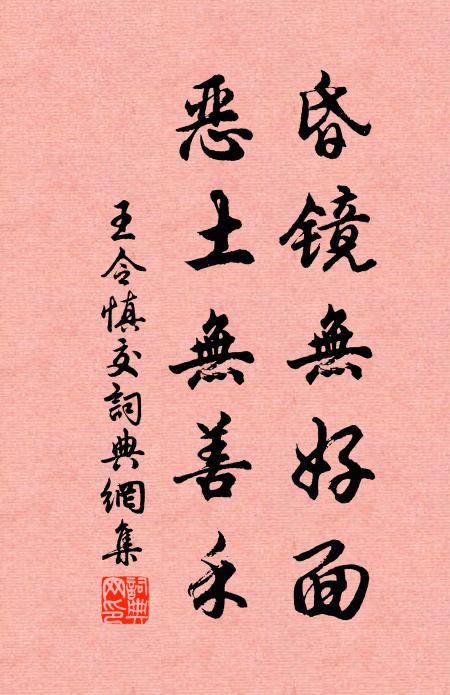 昏镜無好面
恶土無善禾
王令慎交詞典網集
詞典网印